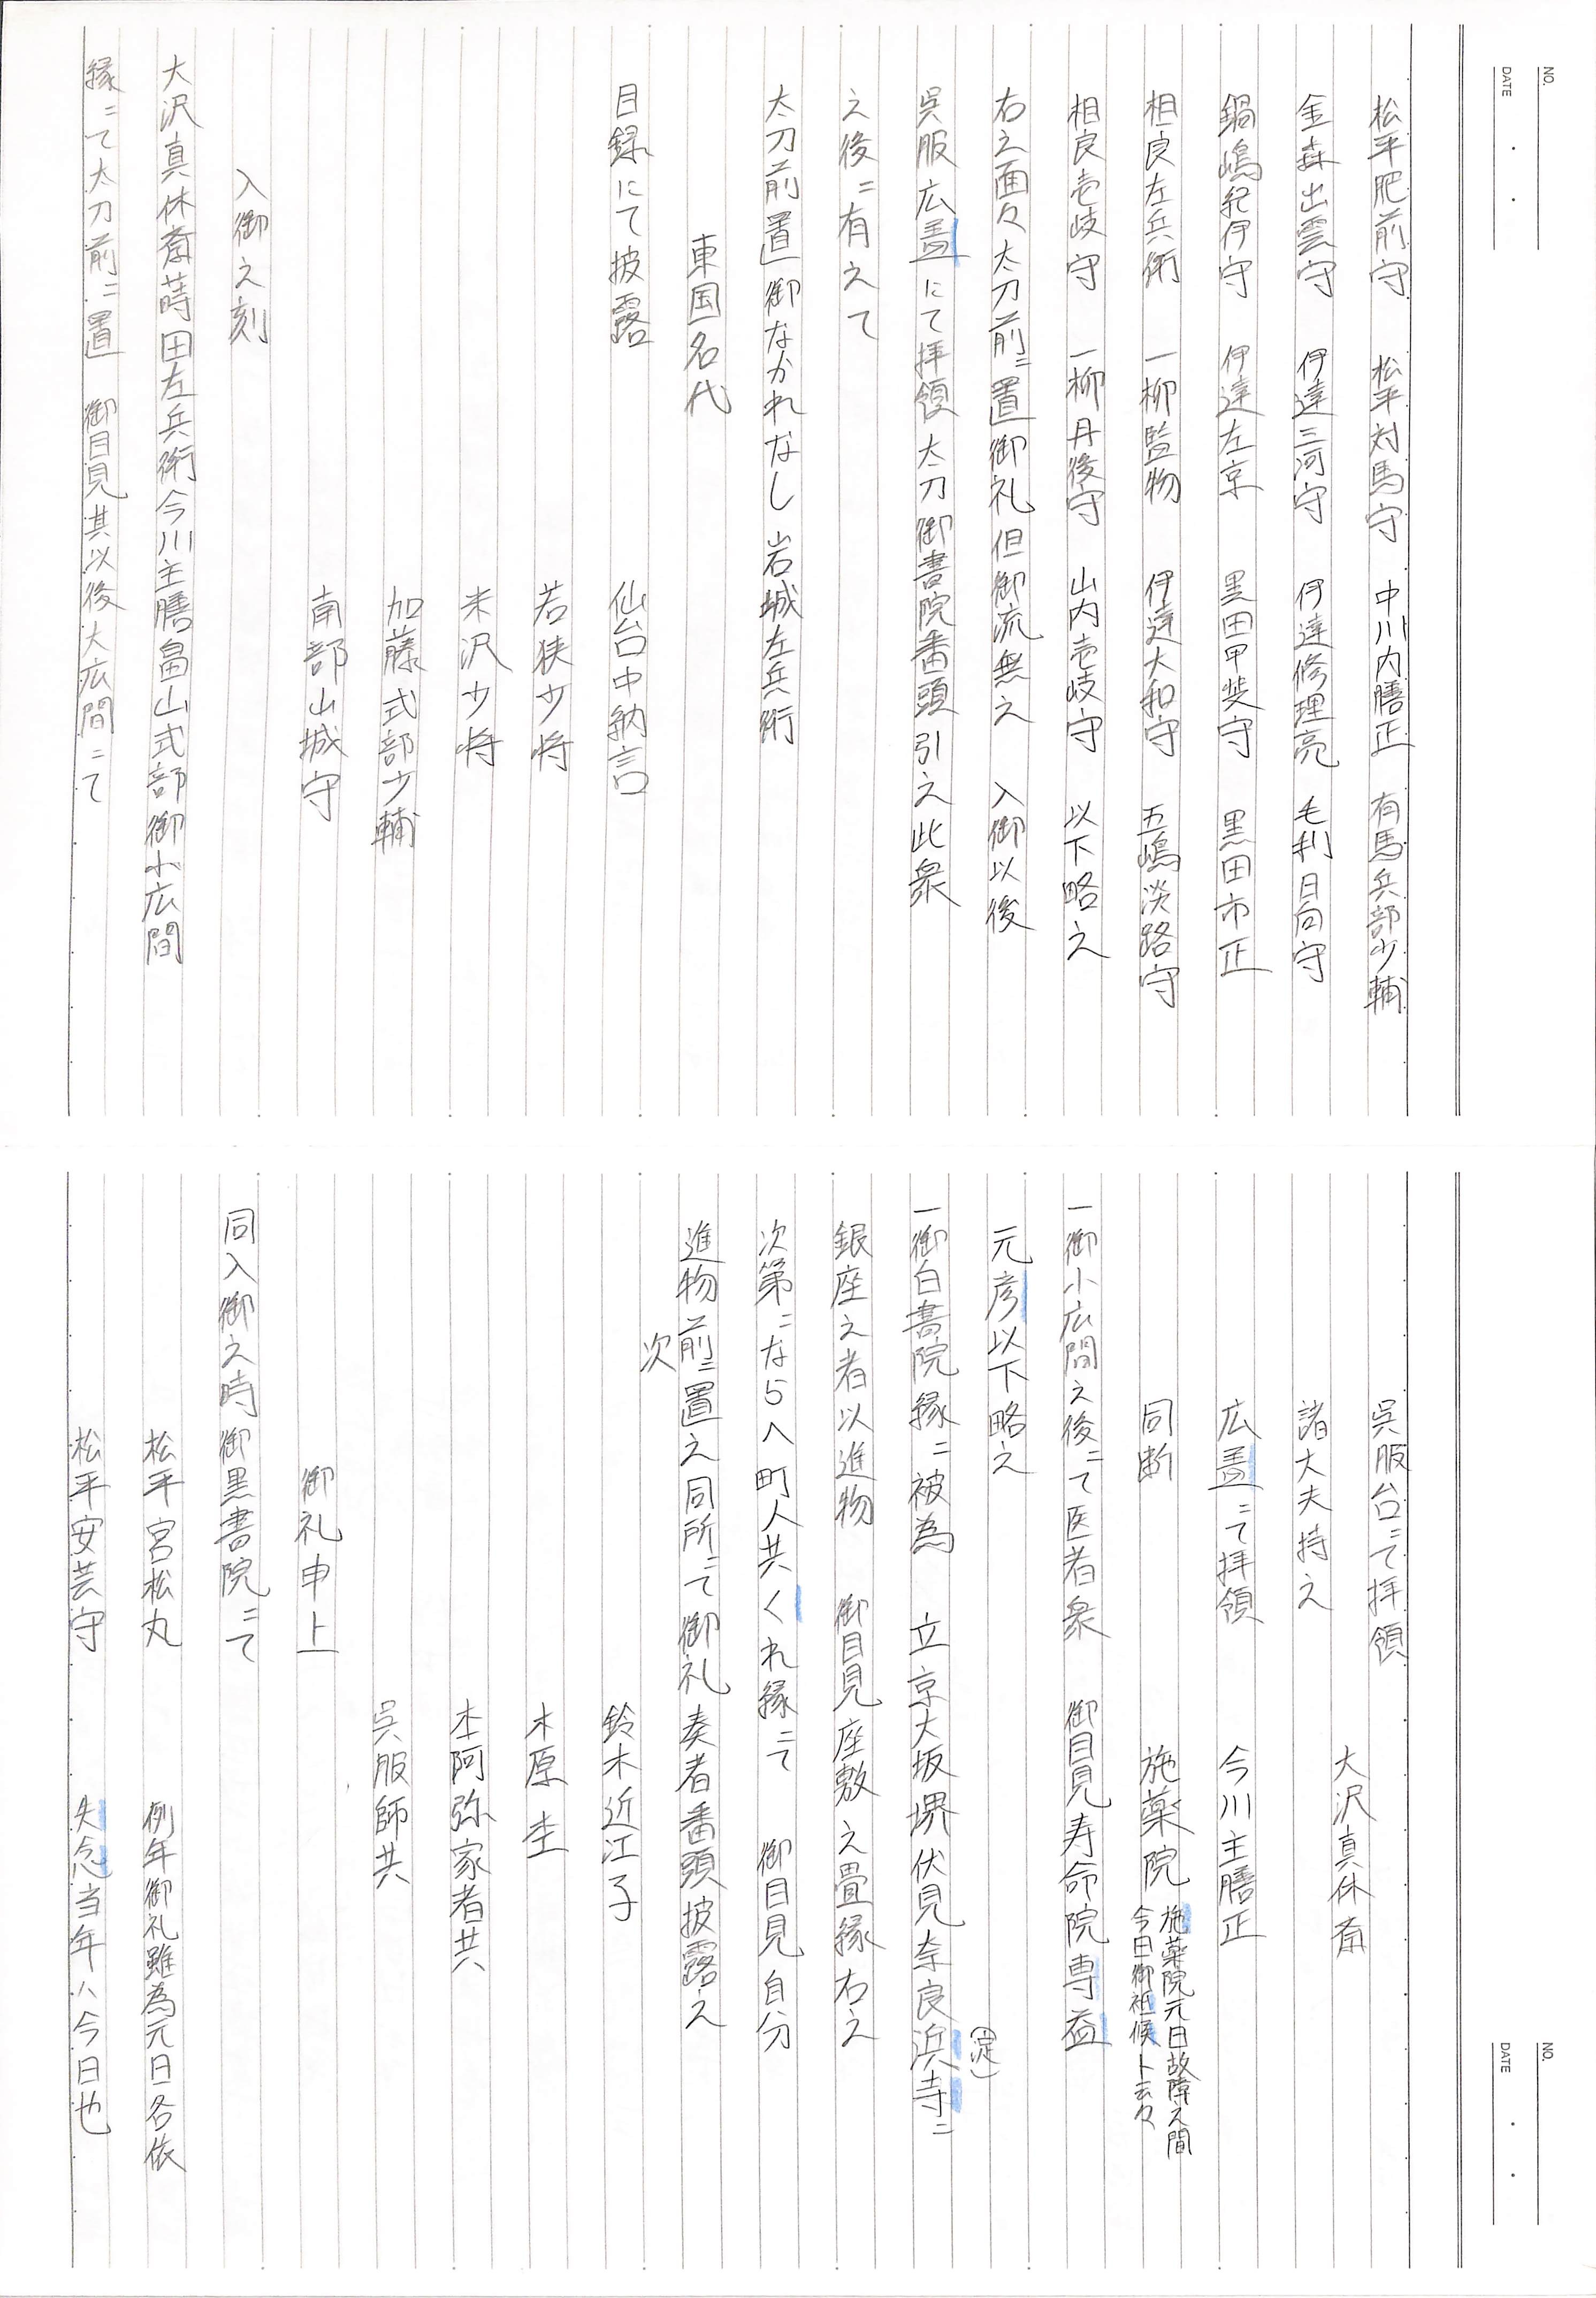 NO.
DATE
松平肥前守 松平対馬守 中川内膳正 有馬兵部少輔
金森出雲守 伊達三河守 伊達修理亮 毛利日向守
鍋嶋紀伊守 伊達左京 黒田甲斐守 黒田市正
相良左兵衛 一柳監物 伊達大和守 五嶋淡路守
相良壱岐守 一柳丹後守 山内壱岐守 以下略之
右之面々太刀前ニ置御礼但御流無之 入御以後
呉服広蓋にて拝領太刀御書院番頭引之此衆
之後ニ有之て
太刀前置御なかれなし岩城左兵衛
東国名代
目録にて披露 仙台中納言
若狭少将
米沢少将
加藤式部少輔
南部山城守
入御之刻
大沢真休斎蒔田左兵衛今川主膳畠山式部御小広間
縁ニて太刀前ニ置 御目見其以後大広間ニて
NO.
DATE
呉服台ニて拝領
大沢真休斎
諸大夫持之
広蓋ニて拝領 今川主膳正
同断 施薬院 施薬院元日故障之間
今日御祗候ト云々
一御小広間之後ニて医者衆 御目見寿命院専益
元彦以下略之
(淀)
一御白書院縁ニ被為 立京大坂堺伏見奈良浜寺ニ
銀座之者以進物 御目見座敷之畳縁右之
次第ニならへ町人共くれ縁ニて 御目見自分
進物前ニ置之同所ニて御礼奏者番頭披露之
次
鈴木近江子
木原杢
本阿弥家者共
呉服師共
御礼申上
同入御之時御黒書院ニて
松平宮松丸 例年御礼雖為元日各依
松平安芸守 失念当年ハ今日也